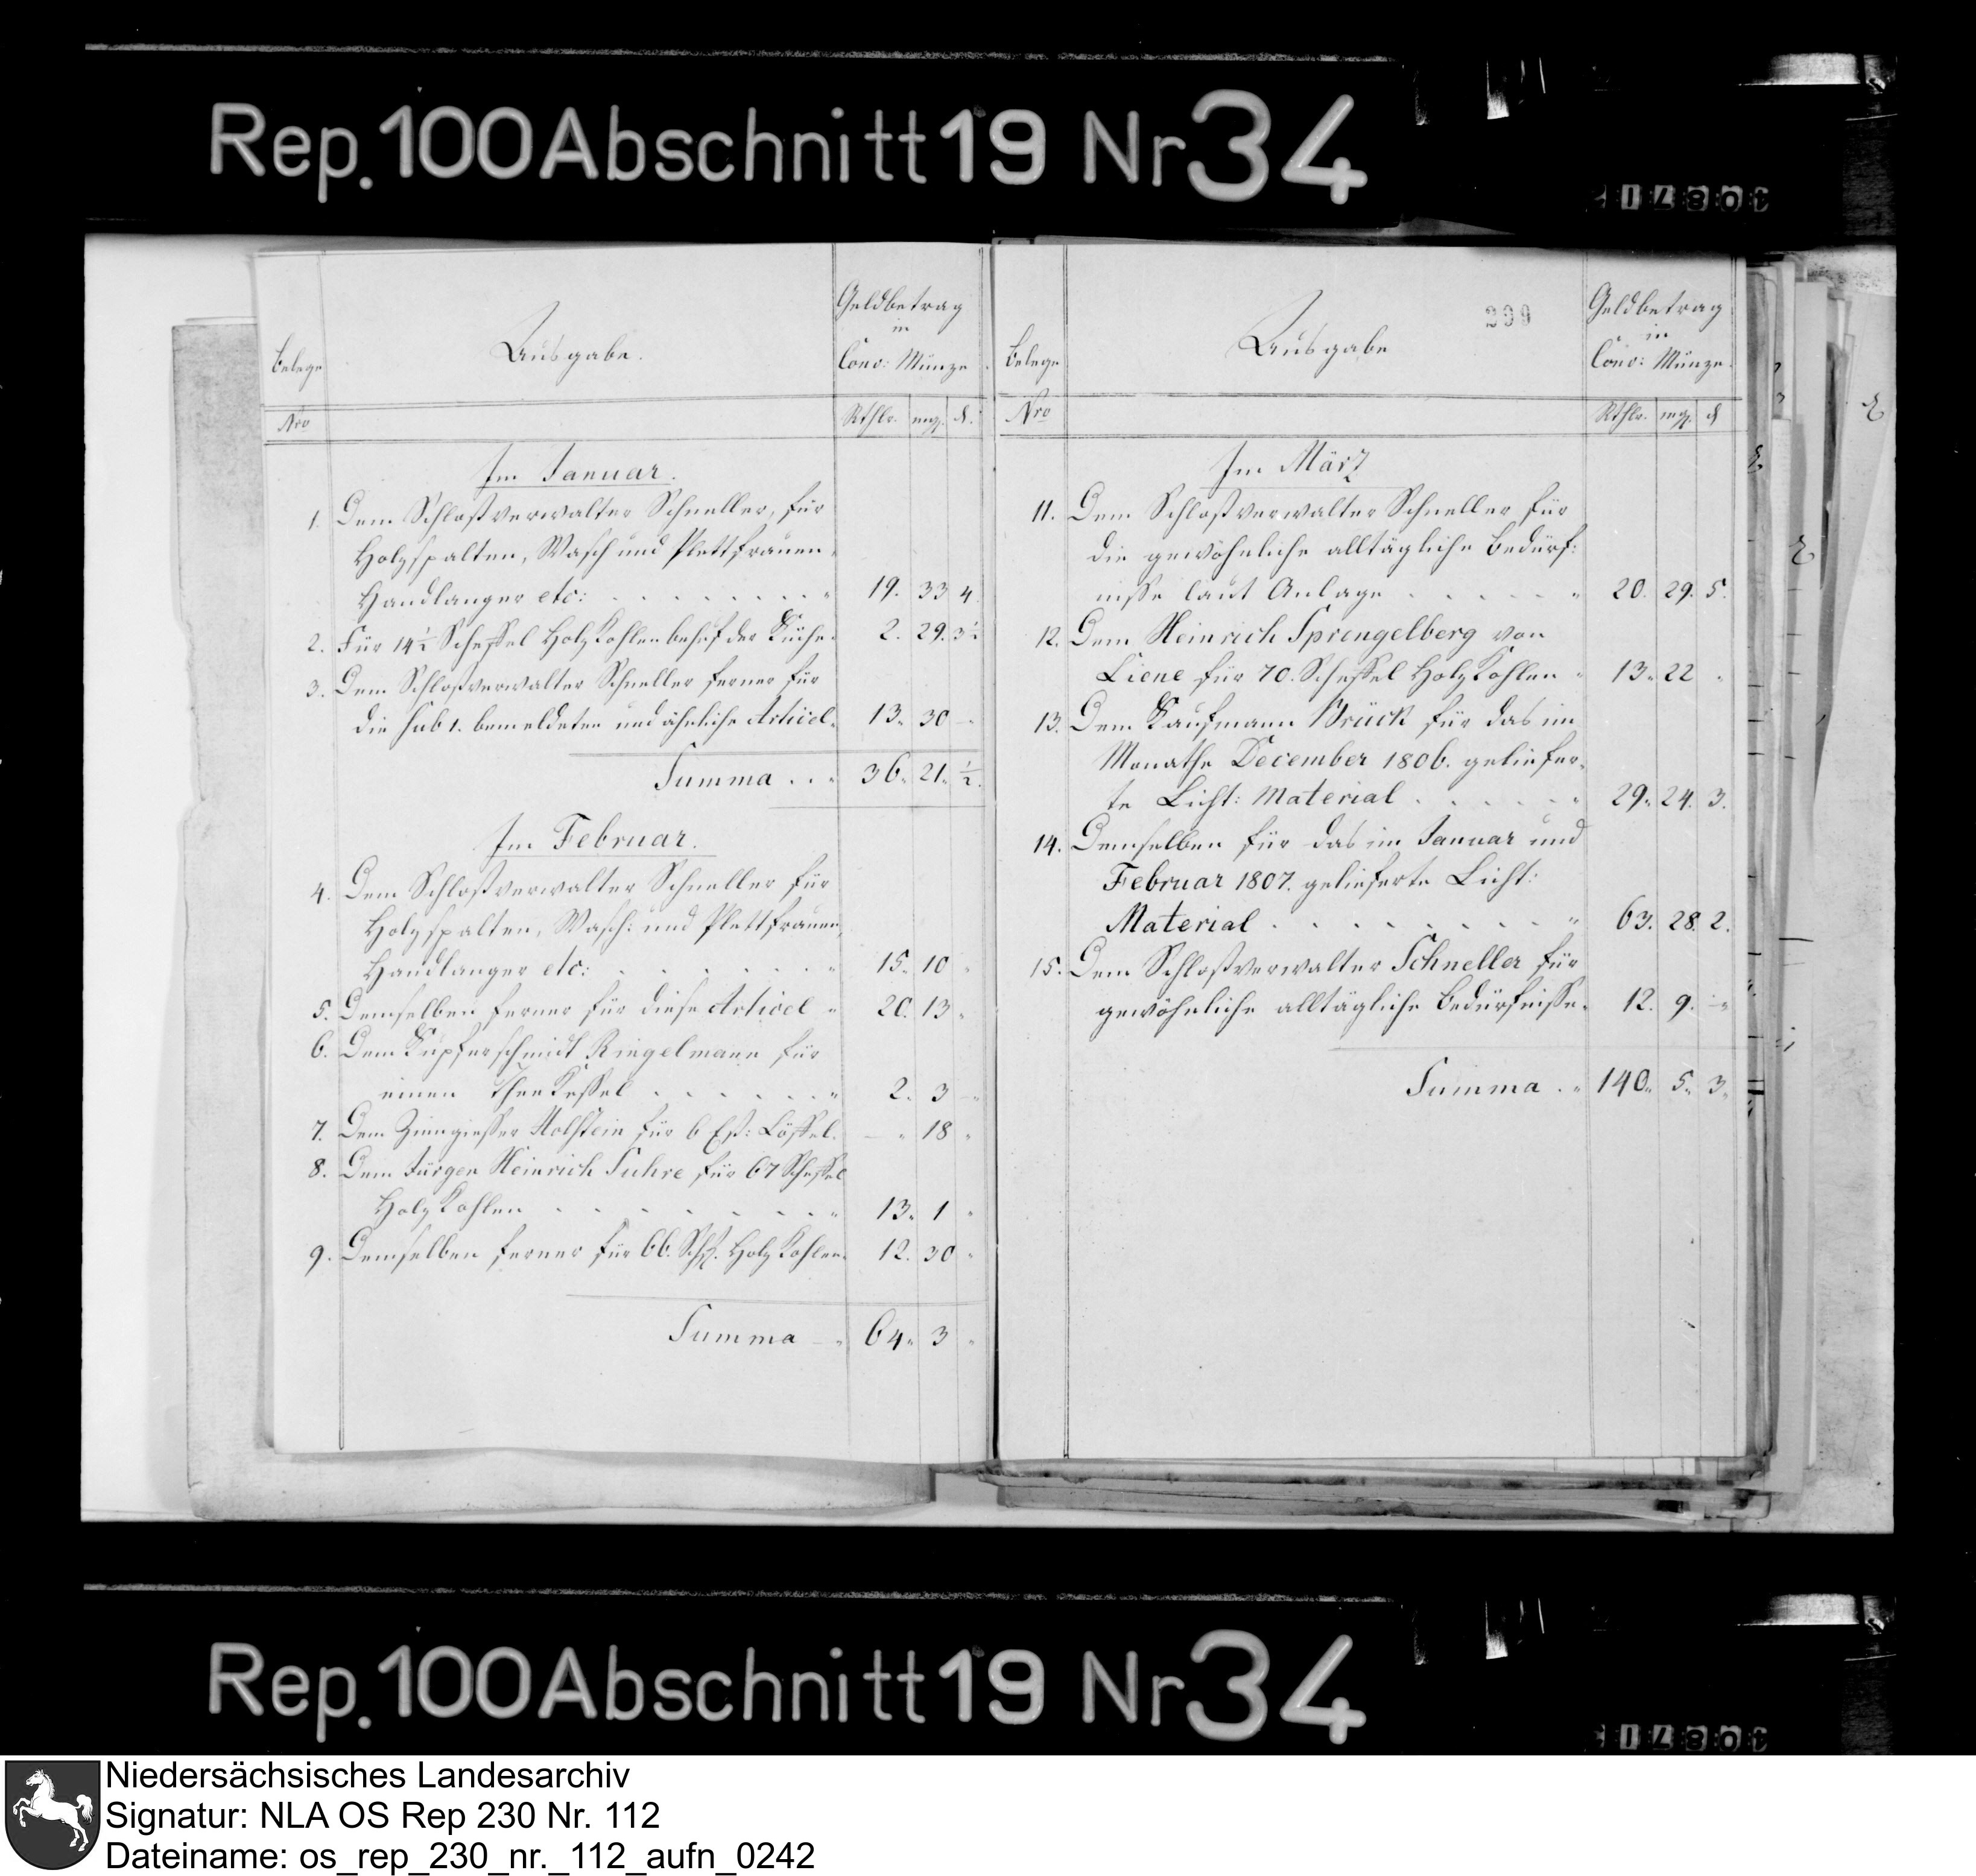 Rep.100 Abschnitt 19 Nr 34
Belege
Nro
Ausgabe.
Geldbetrag
in
Conv: Münze
Rthlr. mgr. d.
Im Januar.
1. Dem Schloßverwalter Schneller, für
Holzspalten, Wasch und Plettfrauen,
Handlanger etc: . . . . . . . . 19. 33 4.
2. Für 14½ Scheffel Holz Kohlen behuf der Küche. 2. 29. 3½
3. Dem Schloßverwalter Schneller ferner für
die sub 1. bemeldeten und ähnliche Articel. 13. 30 -
Summa . . . 36. 21. ½.
Im Februar.
4. Dem Schloßverwalter Schneller für
Holzspalten, Wasch: und Plettfrauen,
Handlanger etc: . . . . . . . 15. 10 "
5. Demselben ferner für diese Articel " 20. 13 "
6. Dem Kupferschmidt Ringelmann für
einen Thee Kessel . . . . . . . 2. 3 -
7. Dem Zinngießer Holstein für 6 Eß: Löffel. - " 18 "
8. Dem Jürgen Heinrich Suhre für 67 Scheffel
Holz Kohlen . . . . . . . . . 13. 1 "
9. Demselben ferner für 66. Schfl. Holz Kohlen. 12. 30 "
Summa - " 64. 3 "
299
Belege
Nro
Ausgabe
Geldbetrag
in
Conv: Münze.
Rthlr. mgr. d
Im März
11. Dem Schloßverwalter Schneller für
die gewöhnliche alltägliche Bedürf:
nisse laut Anlage . . . . . " 20. 29. 5.
12. Dem Heinrich Sprengelberg von
Liene für 70. Scheffel Holz Kohlen " 13. 22 "
13. Dem Kaufmann Brück für das im
Monathe December 1806. geliefer-
te Licht: Material . . . . . . 29. 24. 3.
14. Demselben für das im Januar und
Februar 1807. gelieferte Licht:
Material . . . . . . . . " 63. 28. 2.
15. Dem Schloßverwalter Schneller für
gewöhnliche alltägliche Bedürfnisse. 12. 9. -
Summa . " 140. 5. 3.
Rep.100 Abschnitt 19 Nr 34
Niedersächsisches Landesarchiv
Signatur: NLA OS Rep 230 Nr. 112
Dateiname: os_rep_230_nr._112_aufn_0242